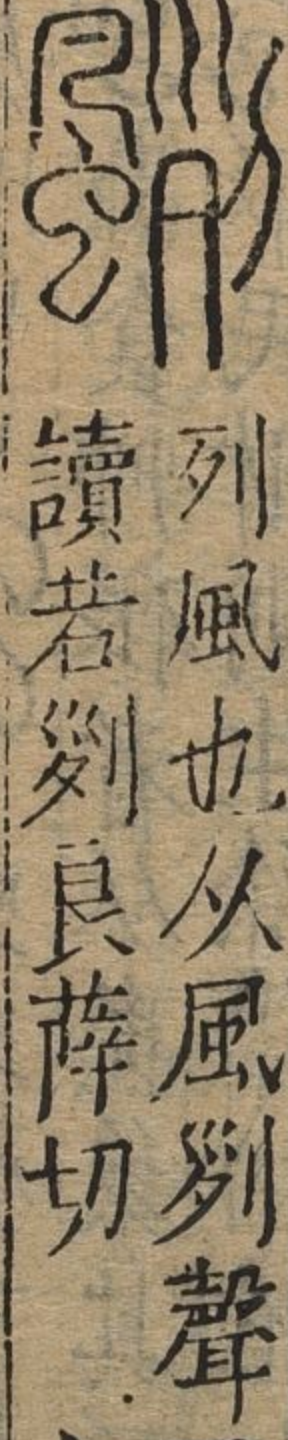 列風也从風𠛱聲
讀若𠛱良薛切